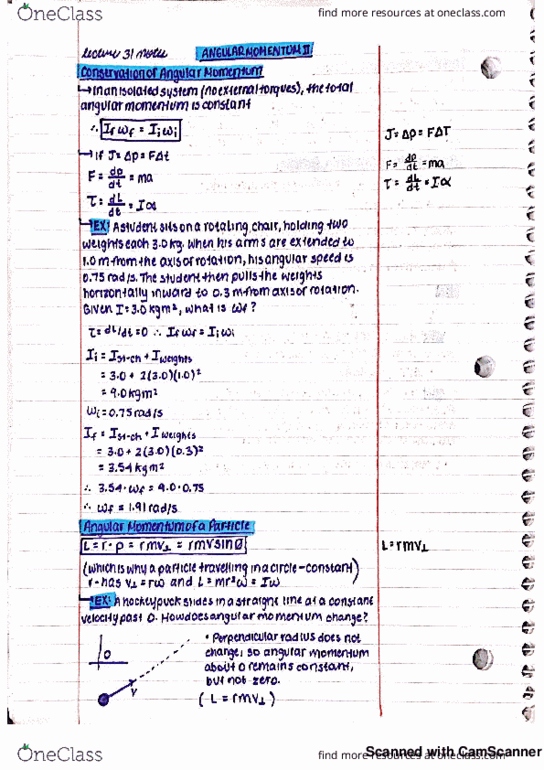 OneClass
find more resources at oneclass.com
Lecture 31 notes
ANGULAR MOMENTUM II
Conservation of Angular Momentum
→ In an isolated system (no external torques), the total
angular momentum is constant
∴ I_f ω_f = I_i ω_i
J = Δp = FΔT
→ If J = Δp = FΔt
F = dp/dt = ma
F = dp/dt = ma
τ = dL/dt = Iα
τ = dL/dt = Iα
→ EX: A student sits on a rotating chair, holding two
weights each 3.0 kg. When his arms are extended to
1.0 m from the axis of rotation, his angular speed is
0.75 rad/s. The student then pulls the weights
horizontally inward to 0.3 m from axis of rotation.
Given I = 3.0 kgm², what is ω_f?
τ = dL/dt = 0 ∴ I_f ω_f = I_i ω_i
I_i = I_st-ch + I_weights
= 3.0 + 2(3.0)(1.0)²
= 9.0 kgm²
ω_i = 0.75 rad/s
I_f = I_st-ch + I_weights
= 3.0 + 2(3.0)(0.3)²
= 3.54 kgm²
∴ 3.54 · ω_f = 9.0 · 0.75
∴ ω_f = 1.91 rad/s
Angular Momentum of a Particle
L = r · p = rmv⊥ = rmvsinθ
L = rmv⊥
(which is why a particle travelling in a circle - constant)
r - has v⊥ = rω and L = mr²ω = Iω
→ EX: A hockey puck slides in a straight line at a constant
velocity past O. How does angular momentum change?
• Perpendicular radius does not
change, so angular momentum
about O remains constant,
but not zero.
(L = rmv⊥)
O
v
OneClass
find more resources at oneclass.com
Scanned with CamScanner